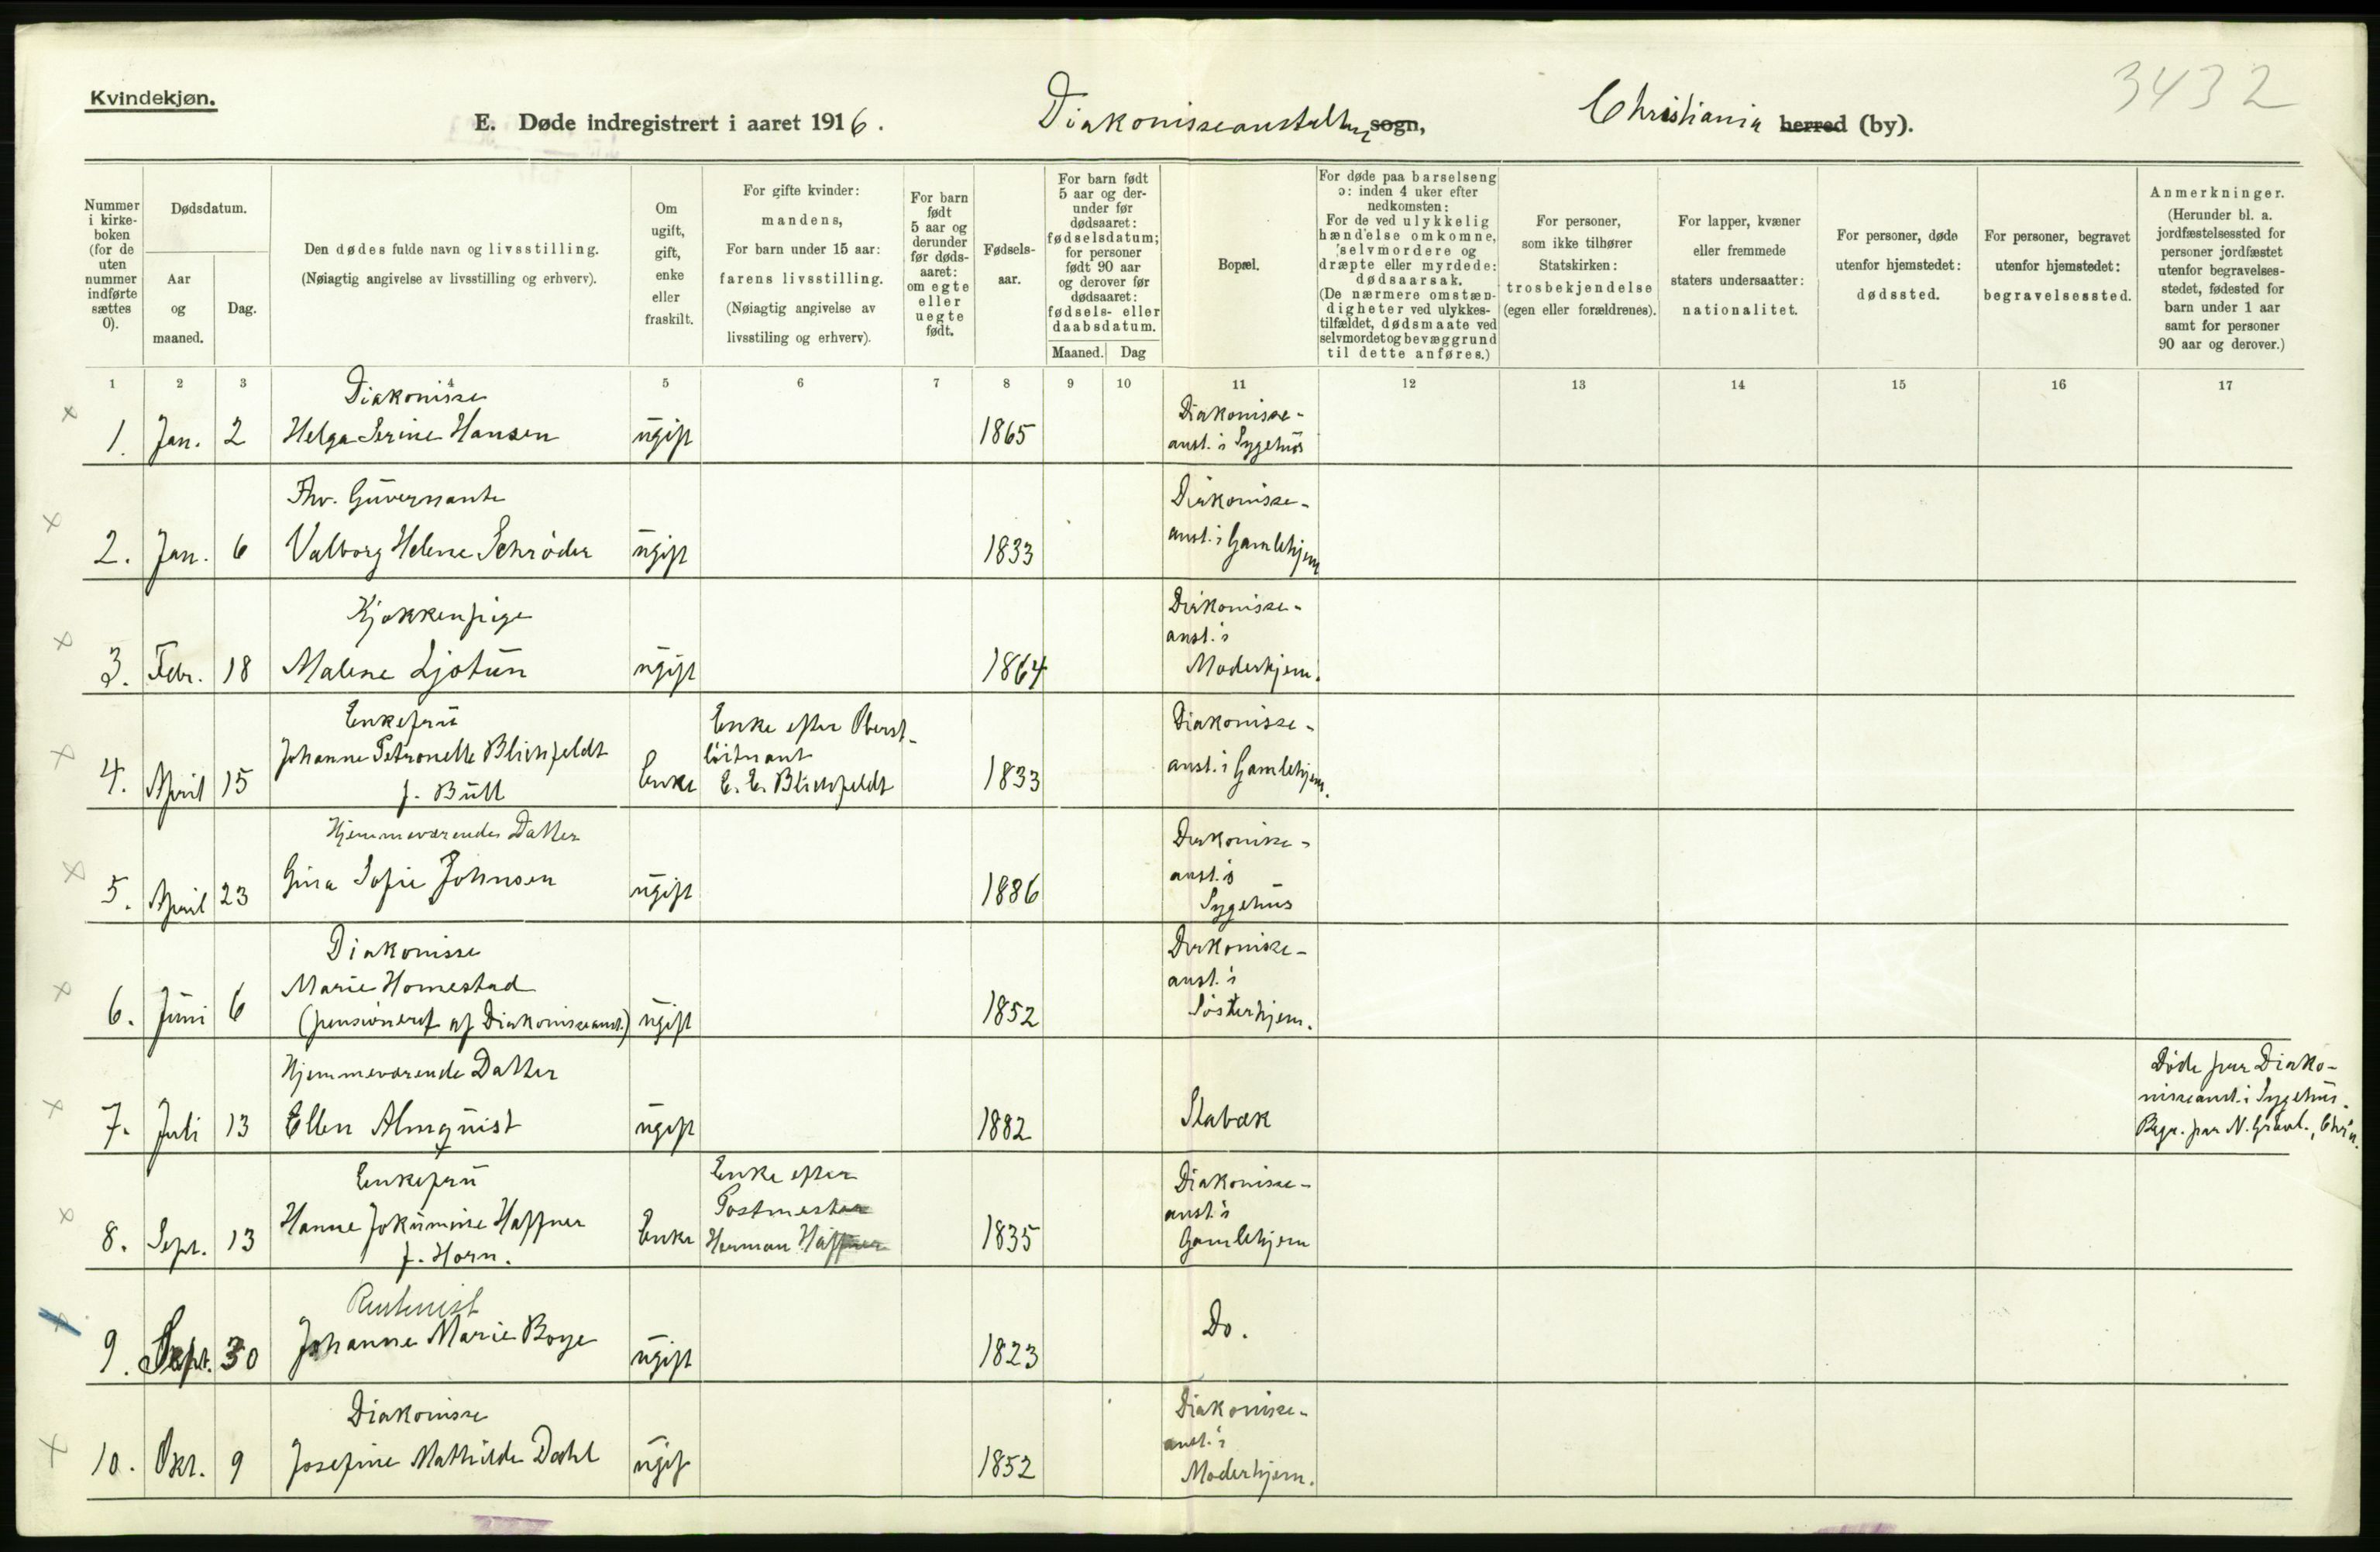 Kvindekjøn.
3432
E. Døde indregistrert i aaret 1916. Diakonisseanstalten sogn, Christiania herred (by).
Nummer i kirke- boken (for de uten nummer indførte sættes 0).
Dødsdatum.
Aar og maaned.
Dag.
Den dødes fulde navn og livsstilling.
(Nøiagtig angivelse av livsstilling og erhverv).
Om ugift, gift, enke eller fraskilt.
For gifte kvinder: mandens,
For barn under 15 aar: farens livsstilling.
(Nøiagtig angivelse av livsstiling og erhverv).
For barn født 5 aar og derunder før døds- aaret: om egte eller uegte født.
Fødsels- aar.
For barn født 5 aar og der- under før dødsaaret: fødselsdatum; for personer født 90 aar og derover før dødsaaret: fødsels- eller daabsdatum.
Maaned. Dag
Bopæl.
For døde paa barselseng ɔ: inden 4 uker efter nedkomsten:
For de ved ulykkelig hændelse omkomne, selvmordere og dræpte eller myrdede: dødsaarsak.
(De nærmere omstæn- digheter ved ulykkes- tilfældet, dødsmaate ved selvmordet og bevæggrund til dette anføres.)
For personer, som ikke tilhører Statskirken: trosbekjendelse (egen eller forældrenes).
For lapper, kvæner eller fremmede staters undersaatter: nationalitet.
For personer, døde utenfor hjemstedet: dødssted.
For personer, begravet utenfor hjemstedet: begravelsessted.
Anmerkninger.
(Herunder bl. a. jordfæstelsessted for personer jordfæstet utenfor begravelses- stedet, fødested for barn under 1 aar samt for personer 90 aar og derover.)
1 2 3 4 5 6 7 8 9 10 11 12 13 14 15 16 17
Diakonisse
1. Jan. 2 Helga Serine Hansen ugift 1865 Diakonisse-
anst.s Sygehus
Fhv. Guvernante
2. Jan. 6 Valborg Helene Schrøder ugift 1833 Diakonisse-
anst.s Gamlehjem
Kjøkkenpige
3. Febr. 18 Malene Ljotun ugift 1864 Diakonisse-
anst.s
Moderhjem.
Enkefru
4. April 15 Johanne Petronelle Blichfeldt
f. Bull
Enke
Enke efter Oberst-
löitnant
E. E. Blichfeldt
1833
Diakonisse-
anst.s Gamlehjem.
Hjemmeværende Datter
5. April 23 Gina Sofie Johnsen ugift 1886 Diakonisse-
anst.s
Sygehus
Diakonisse
6. Juni 6 Marie Homestad
(pensioneret af Diakonisseanst.) ugift 1852
Diakonisse-
anst.s
Søsterhjem.
Hjemmeværende Datter
7. Juli 13 Ellen Almquist ugift 1882 Stabæk
Døde paa Diako-
nisseanst.s Sygehus.
Begr. paa N. Gravl., Chr.a.
Enkefru
8. Sept. 13 Hanne Jokumine Haffner
f. Horn.
Enke
Enke efter
Postmester
Herman Haffner
1835
Diakonisse-
anst.s
Gamlehjem
Rentenist
9. Sept. 30 Johanne Marie Boye ugift 1823 Do.
Diakonisse
10. Okt. 9 Josefine Mathilde Dahl ugift 1852 Diakonisse-
anst.s
Moderhjem.